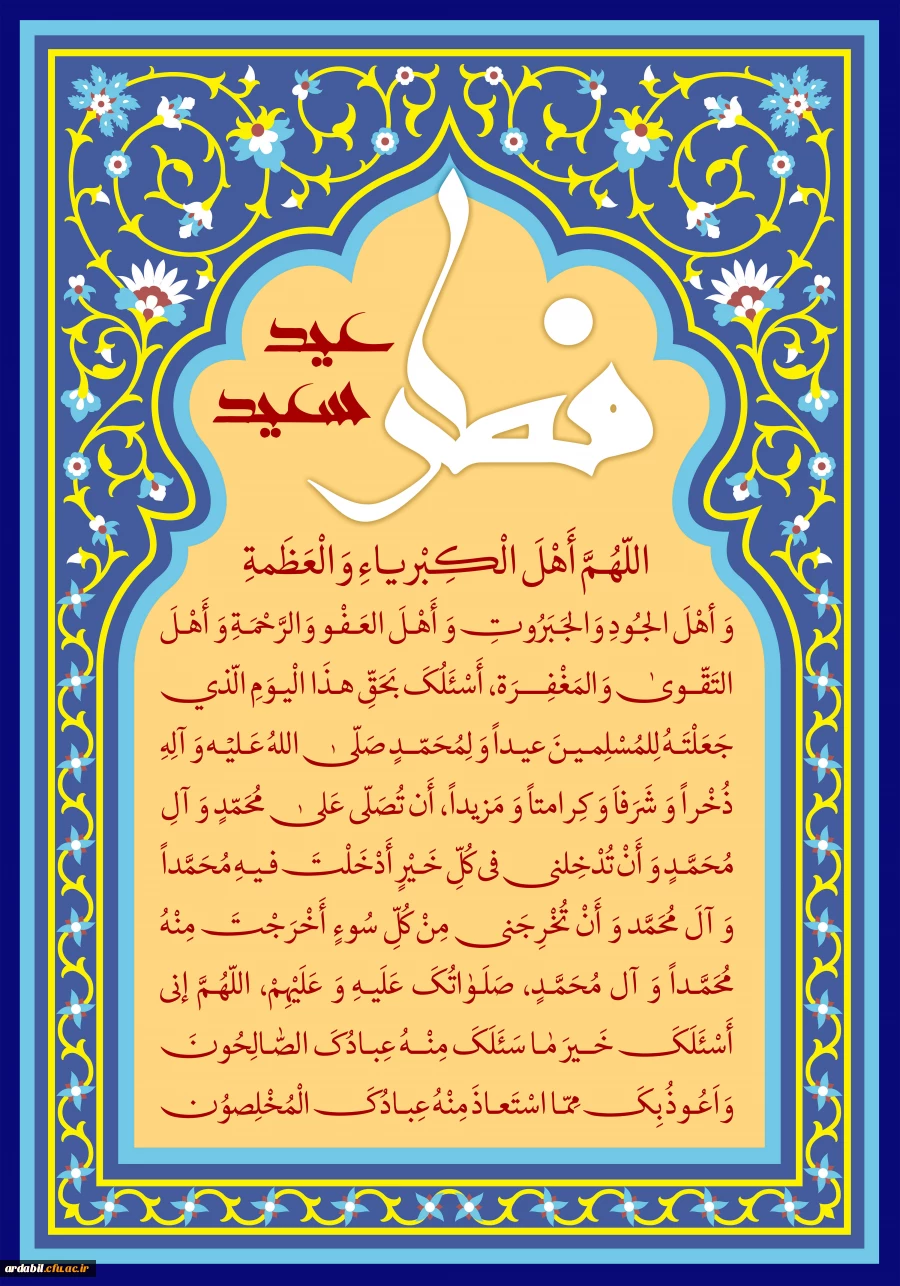 عید
سعید
فطر
اللّهُمَّ أَهْلَ الْکِبْریاءِ وَ الْعَظَمةِ
وَ أَهْلَ الجُودِ وَ الجَبَرُوتِ وَ أَهْلَ العَفْو وَ الرَّحْمَةِ وَ أَهْلَ
التَقّوىٰ وَ المَغْفِرَة، أَسْئلُکَ بَحَقِّ هذَا الْیومِ الّذي
جَعَلْتَهُ لِلمُسْلِمینَ عیداً وَ لِمُحَمّدٍ صَلّیٰ اللهُ عَلیْه وَ آلِهِ
ذُخْراً وَ شَرَفاَ وَ کِرامتاً وَ مَزیداً، أَن تُصَلّی عَلیٰ مُحَمّدٍ وَ آلِ
مُحَمَّدٍ وَ أَنْ تُدْخِلنی فی کُلِّ خَیْرٍ أَدْخَلْتَ فیهِ مُحَمَّداً
وَ آلَ مُحَمَّد وَ أَنْ تُخْرِجَنی مِنْ کُلِّ سُوءٍ أَخْرَجْتَ مِنْهُ
مُحَمَّداً وَ آل مُحَمَّدٍ، صَلَوٰاتُکَ عَلَیهِ وَ عَلَیْهِمْ، اللّهُمَّ إنی
أَسْئَلَکَ خَیرَ مٰا سَئَلَکَ مِنْهُ عِبادُکَ الصّٰالِحُونَ
وَ اَعُوذُ بِکَ مِمّا اسْتَعاذَ مِنْهُ عِبادُکَ الْمُخْلِصوُن
ardabil.cfu.ac.ir